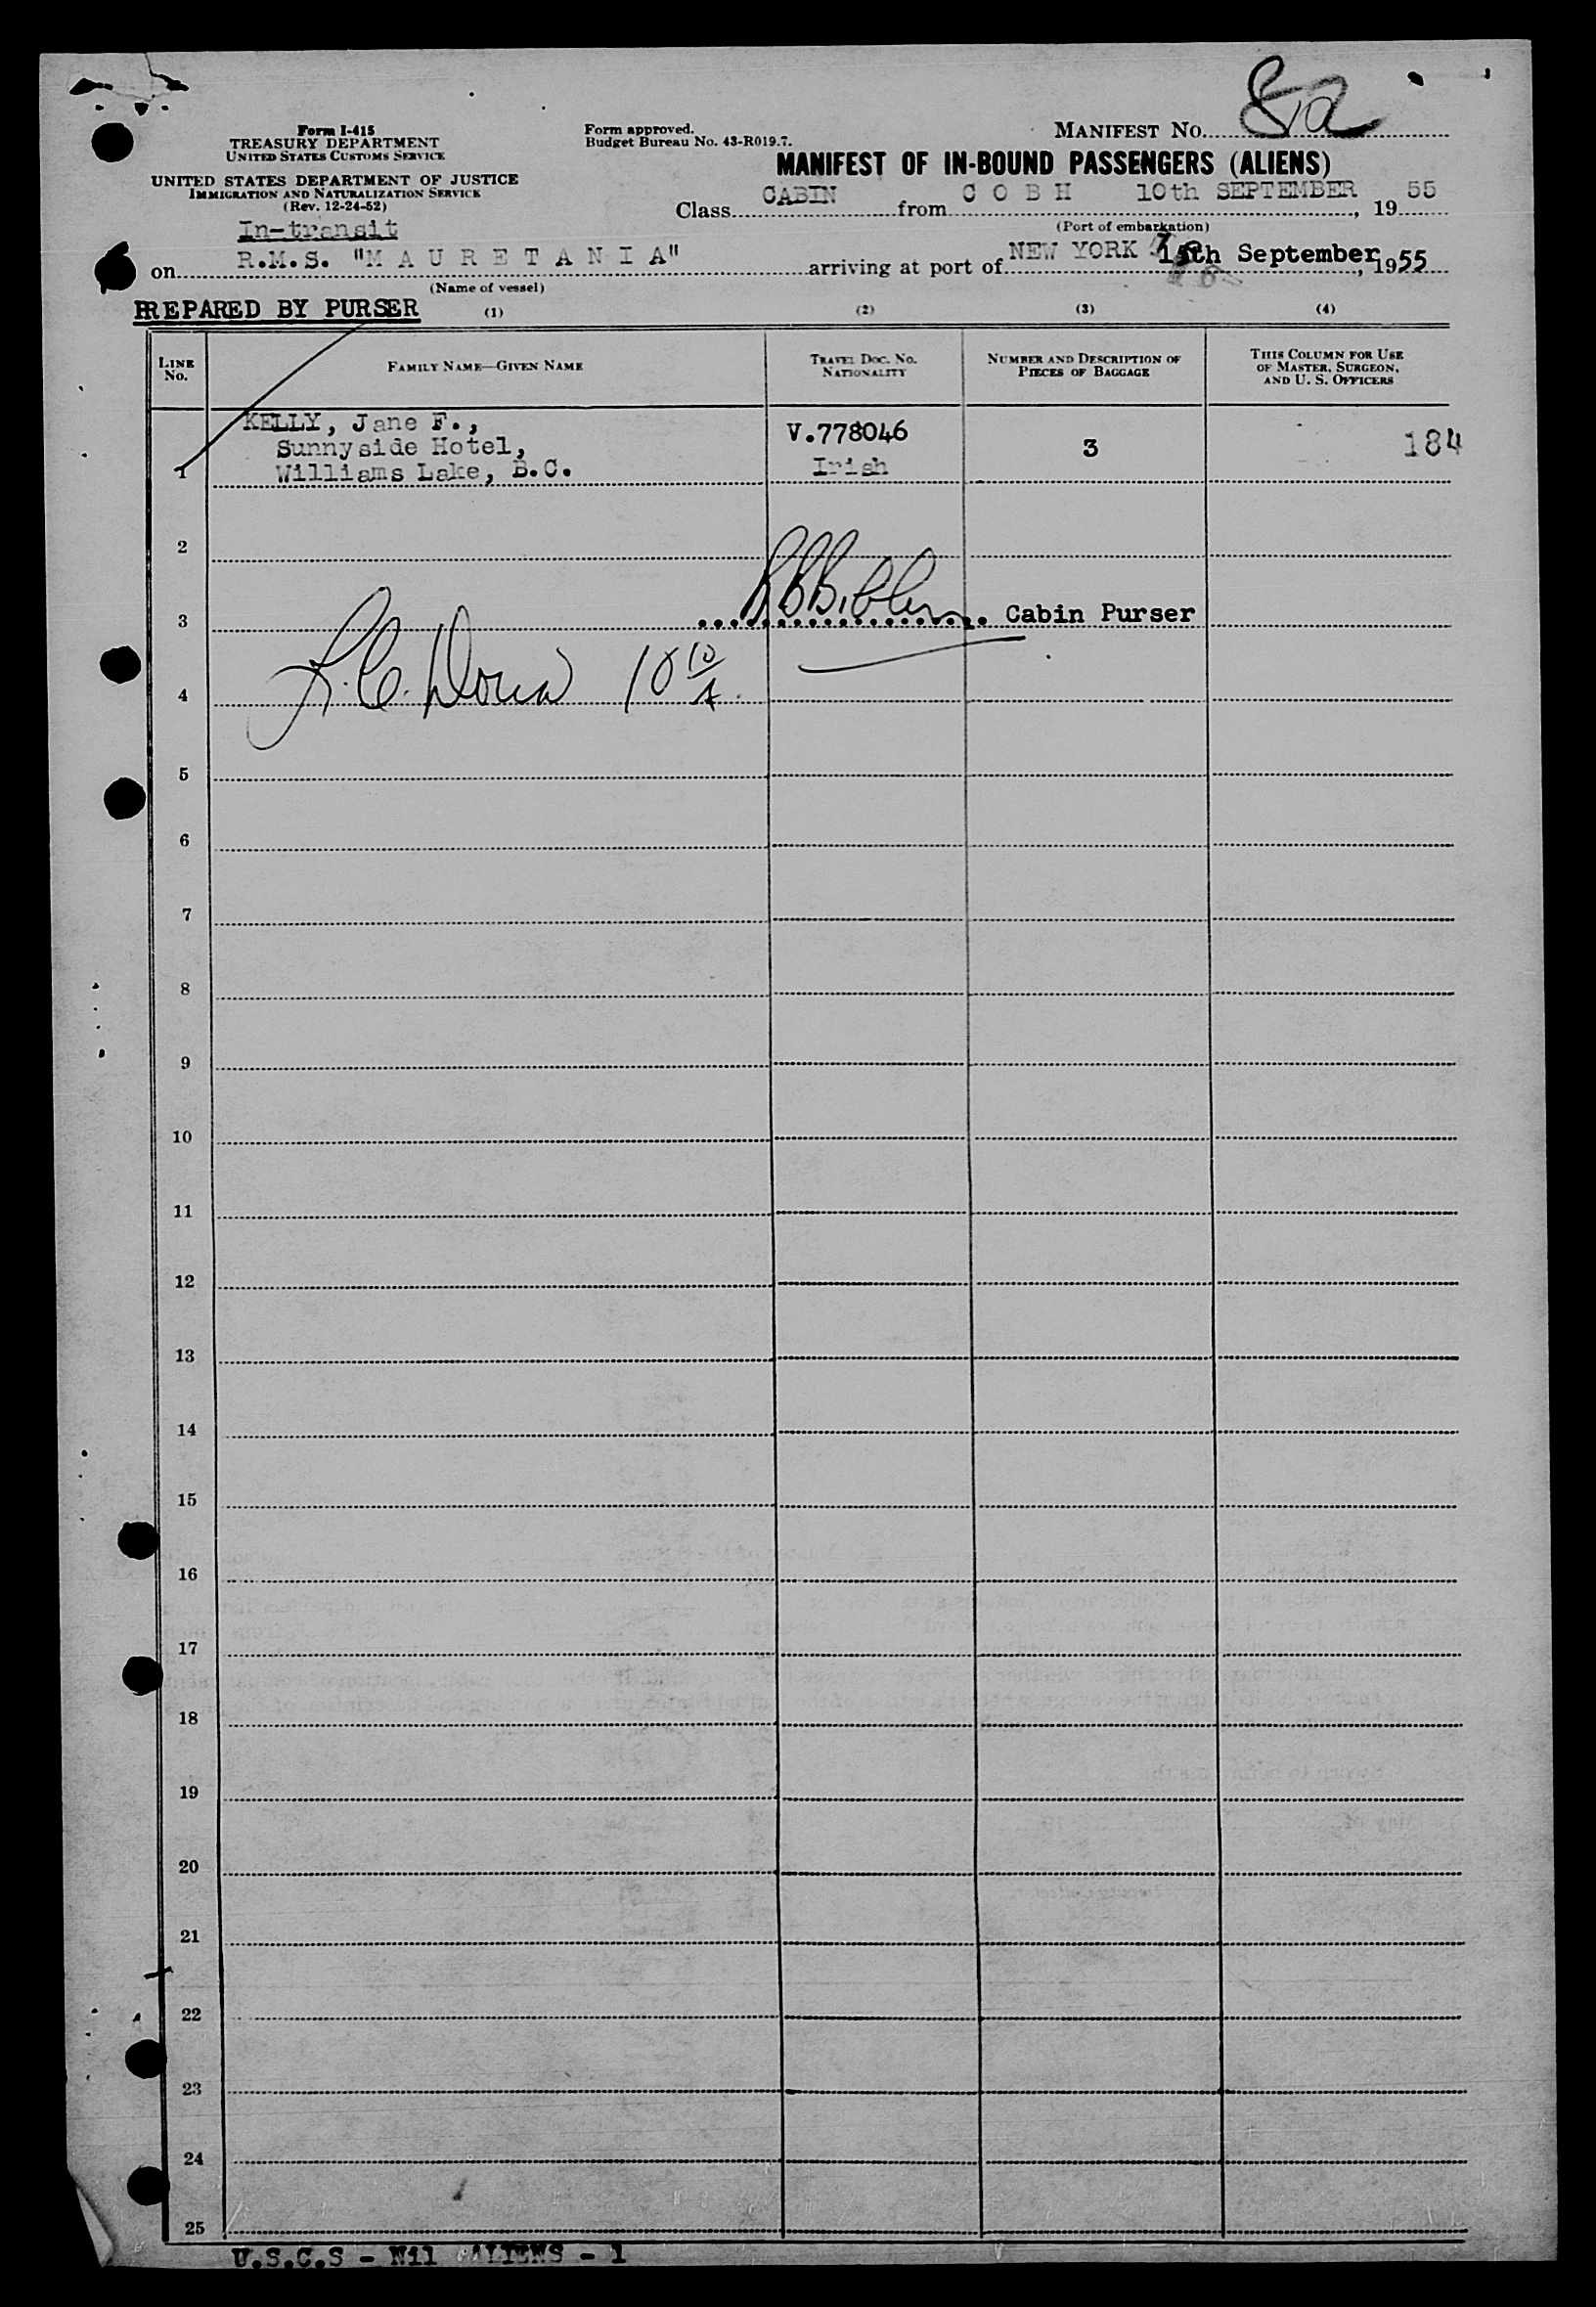 MANIFEST NO. 8a
Form I-415
TREASURY DEPARTMENT
UNITED STATES CUSTOMS SERVICE
Form approved.
Budget Bureau No. 43-R019.7.
UNITED STATES DEPARTMENT OF JUSTICE
IMMIGRATION AND NATURALIZATION SERVICE
(Rev. 12-24-52)
MANIFEST OF IN-BOUND PASSENGERS (ALIENS)
Class CABIN from C O B H 10th SEPTEMBER, 1955
(Port of embarkation)
In-transit
on R.M.S. "M A U R E T A N I A" arriving at port of NEW YORK 15th September, 1955
(Name of vessel)
PREPARED BY PURSER
(1) (2) (3) (4)
LINE NO. FAMILY NAME—GIVEN NAME TRAVEL DOC. NO. NATIONALITY NUMBER AND DESCRIPTION OF PIECES OF BAGGAGE THIS COLUMN FOR USE OF MASTER, SURGEON, AND U. S. OFFICERS
KELLY, Jane F., V.778046
Sunnyside Hotel, 3 184
1 Williams Lake, B.C. Irish
2
3 Cabin Purser
4 10 10/A
5
6
7
8
9
10
11
12
13
14
15
16
17
18
19
20
21
22
23
24
25
U.S.C.S - Nil ALIENS - 1